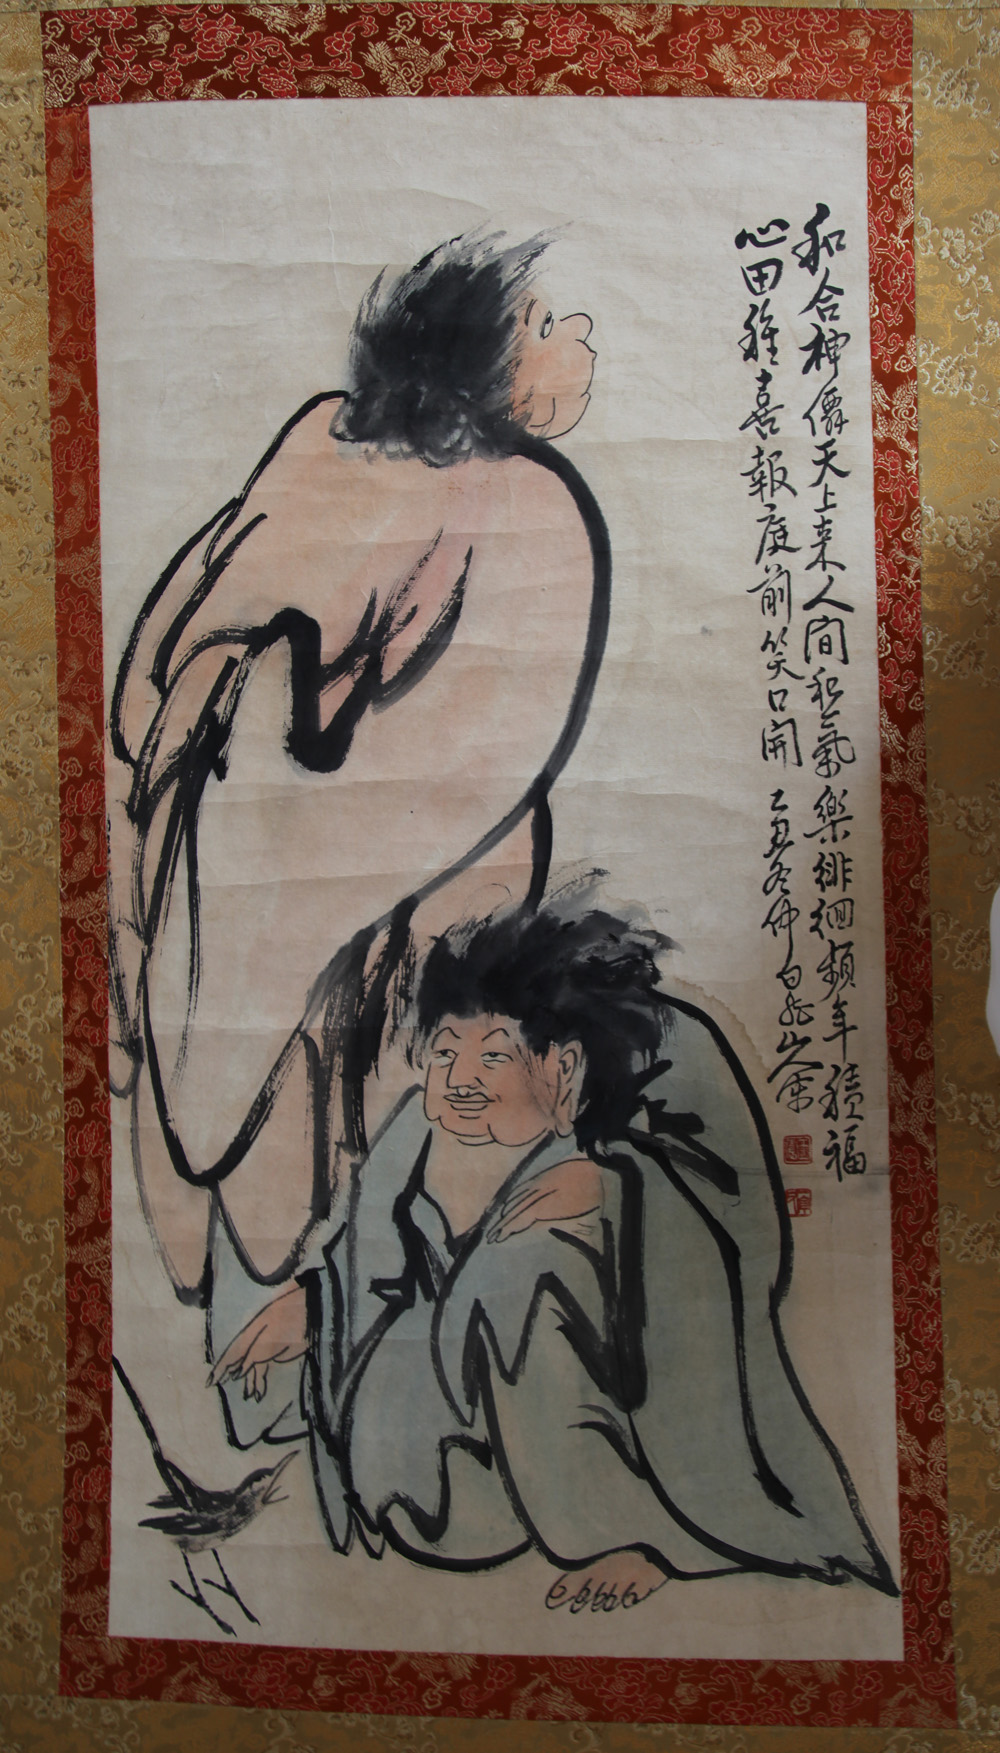 和合神僊天上来人间和氣樂徘徊頻年積福
心田種喜報庭前笑口開 乙丑冬仲白龍山人